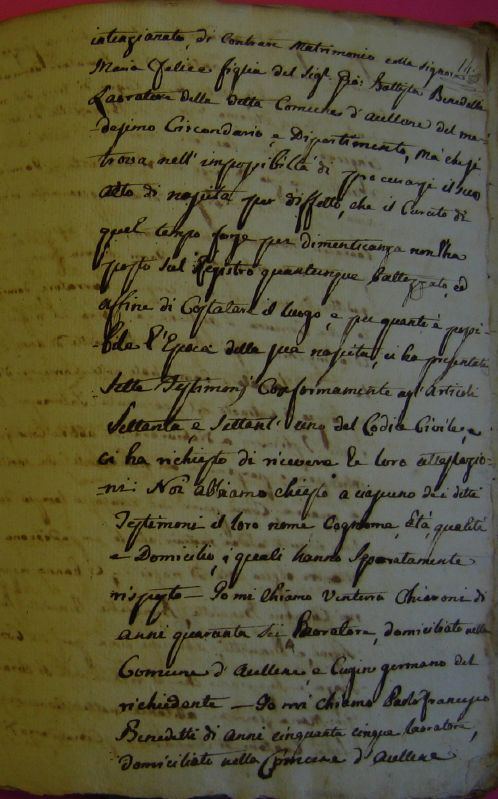 intenzionato, di Contrare Matrimonio colla Signora
Maria Felice figlia del Sigr. Gio: Battista Benedetti
Lavoratore della detta Comune d'Aullene del me-
-desimo Circondario, e Dipartimento, Mà che si
trova nell'impossibiltà di procurarsi il suo
atto di nascita per diffetto, che il Curato di
quel tempo forse per dimenticanza non l'ha
posto sul Registro quantunque battezzato, ed
affine di Costatare il luogo, e per quanto è possi-
-bile l'Epoca della sua nascita, ci ha presentati
Sette Testimonj Conformamente agl'Articoli
Settanta, e Settant'uno del Codice Civile, e
ci ha richiesto di ricevere le loro attestazio-
-ni. Noi abbiamo chiesto a ciascuno dei detti
Testimoni il loro nome Cognome, Età, qualità
e Domicilio, i quali hanno Separatamente
risposto — Io mi chiamo Chiaroni di
anni quaranta sei Lavoratore, domiciliato nella
Comune d'Aullene, e Cugino germano del
richiedente — Io mi chiamo Paolo Francesco
Benedetti di Anni cinquanta cinque lavoratore,
domiciliato nella Comune d'Aullene